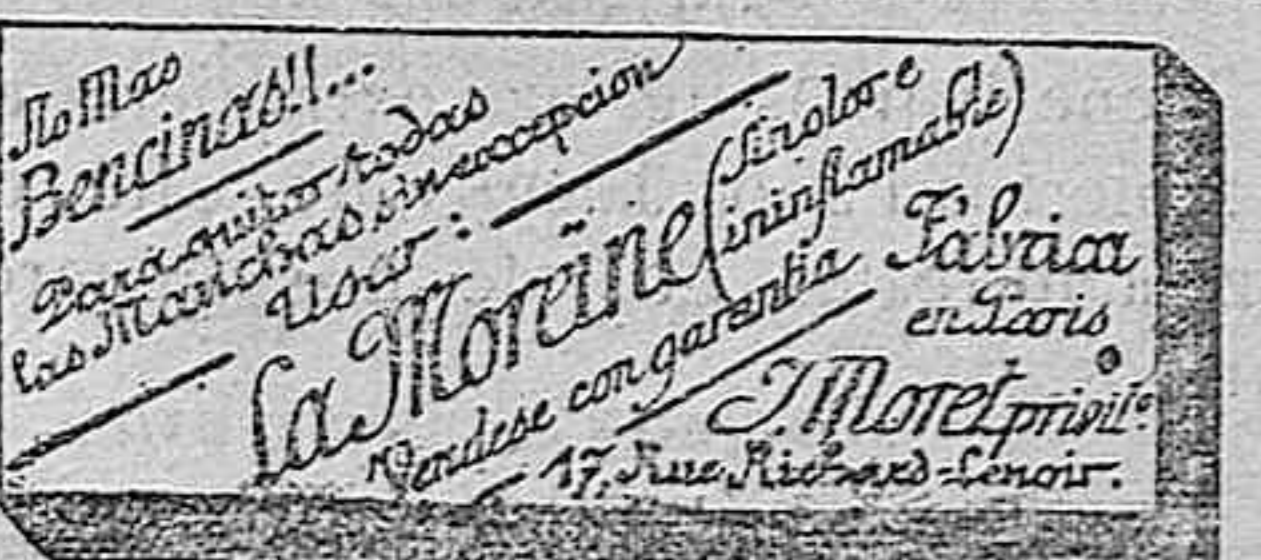 No Mas
Bencinas!!...
Para quitar todas
las Manchas sin excepcion
Usar:
La Moreïne
(Sin olor e
ininflamable)
Vendese con garantia
Fabrica
en Paris
J. Moret privil.º
17, Rue Richard-Lenoir.